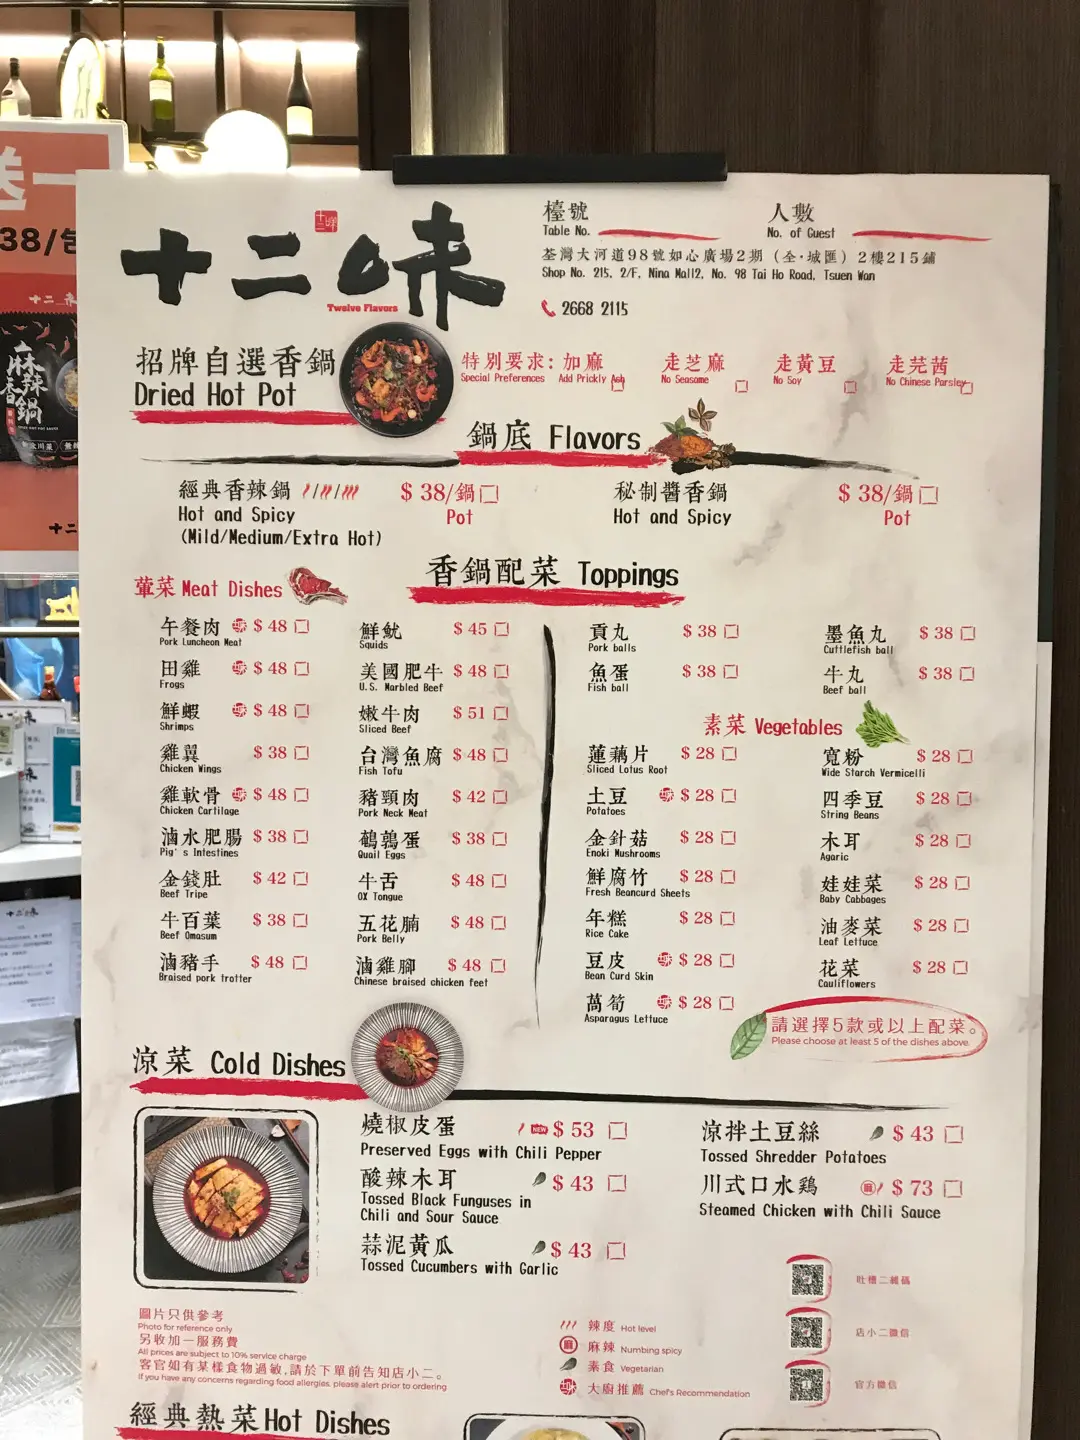 送一
38/包
十二味
麻辣香鍋
十二味
Twelve Flavors
檯號
Table No.
人數
No. of Guest
荃灣大河道98號如心廣場2期（全·城匯）2樓215鋪
Shop No. 215, 2/F, Nina Mall2, No. 98 Tai Ho Road, Tsuen Wan
2668 2115
招牌自選香鍋
Dried Hot Pot
特別要求: 加麻 走芝麻 走黃豆 走芫茜
Special Preferences Add Prickly Ash No Seasome No Soy No Chinese Parsley
鍋底 Flavors
經典香辣鍋 $ 38/鍋
Hot and Spicy Pot
(Mild/Medium/Extra Hot)
秘制醬香鍋 $ 38/鍋
Hot and Spicy Pot
香鍋配菜 Toppings
葷菜 Meat Dishes
午餐肉 $ 48
Pork Luncheon Meat
田雞 $ 48
Frogs
鮮蝦 $ 48
Shrimps
雞翼 $ 38
Chicken Wings
雞軟骨 $ 48
Chicken Cartilage
滷水肥腸 $ 38
Pig's Intestines
金錢肚 $ 42
Beef Tripe
牛百葉 $ 38
Beef Omasum
滷豬手 $ 48
Braised pork trotter
鮮魷 $ 45
Squids
美國肥牛 $ 48
U.S. Marbled Beef
嫩牛肉 $ 51
Sliced Beef
台灣魚腐 $ 48
Fish Tofu
豬頸肉 $ 42
Pork Neck Meat
鵪鶉蛋 $ 38
Quail Eggs
牛舌 $ 48
OX Tongue
五花腩 $ 48
Pork Belly
滷雞腳 $ 48
Chinese braised chicken feet
貢丸 $ 38
Pork balls
魚蛋 $ 38
Fish ball
墨魚丸 $ 38
Cuttlefish ball
牛丸 $ 38
Beef ball
素菜 Vegetables
蓮藕片 $ 28
Sliced Lotus Root
土豆 $ 28
Potatoes
金針菇 $ 28
Enoki Mushrooms
鮮腐竹 $ 28
Fresh Beancurd Sheets
年糕 $ 28
Rice Cake
豆皮 $ 28
Bean Curd Skin
萵筍 $ 28
Asparagus Lettuce
寬粉 $ 28
Wide Starch Vermicelli
四季豆 $ 28
String Beans
木耳 $ 28
Agaric
娃娃菜 $ 28
Baby Cabbages
油麥菜 $ 28
Leaf Lettuce
花菜 $ 28
Cauliflowers
請選擇5款或以上配菜。
Please choose at least 5 of the dishes above.
涼菜 Cold Dishes
燒椒皮蛋 NEW $ 53
Preserved Eggs with Chili Pepper
酸辣木耳 $ 43
Tossed Black Funguses in
Chili and Sour Sauce
蒜泥黃瓜 $ 43
Tossed Cucumbers with Garlic
涼拌土豆絲 $ 43
Tossed Shredder Potatoes
川式口水鷄 麻 $ 73
Steamed Chicken with Chili Sauce
圖片只供參考
Photo for reference only
另收加一服務費
All prices are subject to 10% service charge
客官如有某樣食物過敏,請於下單前告知店小二。
If you have any concerns regarding food allergies, please alert prior to ordering
辣度 Hot level
麻 麻辣 Numbing spicy
素食 Vegetarian
大廚推薦 Chef's Recommendation
吐槽二維碼
店小二微信
官方微信
經典熱菜 Hot Dishes